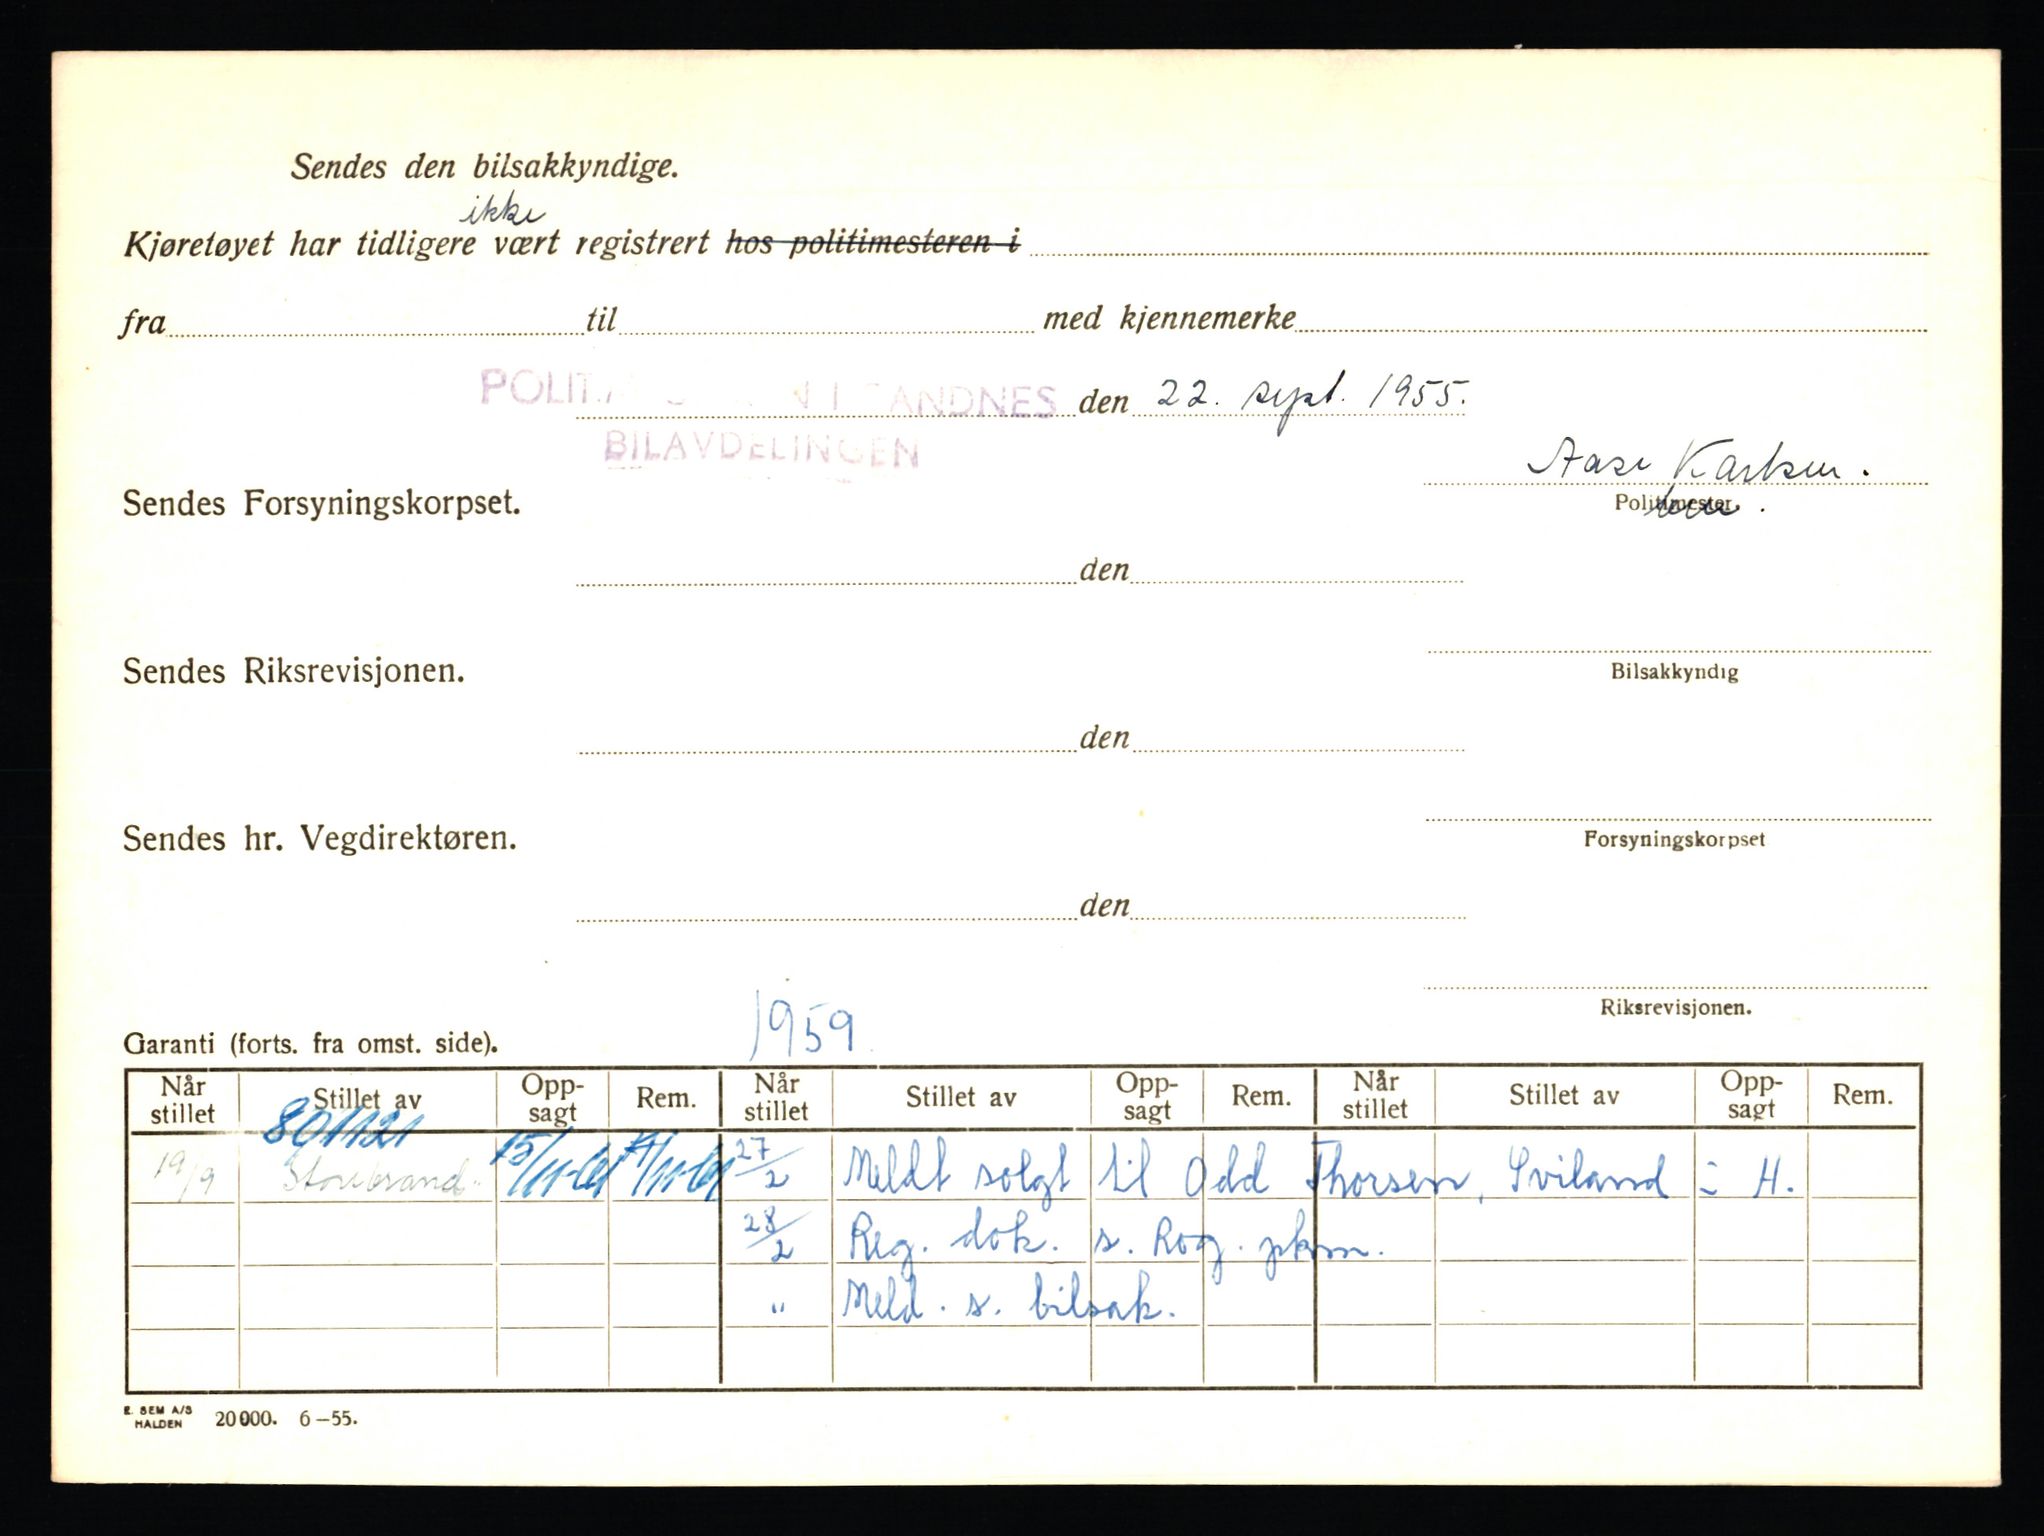 Sendes den bilsakkyndige.
ikke
Kjøretøyet har tidligere vært registrert hos politimesteren i
fra til med kjennemerke
ANDNES den 22. sept. 1955.
BILAVDELINGEN
Aase Karlsen.
Sendes Forsyningskorpset. Politimester.
den
Sendes Riksrevisjonen. Bilsakkyndig
den
Sendes hr. Vegdirektøren. Forsyningskorpset
den
Riksrevisjonen.
1959
Garanti (forts. fra omst. side).
Når stillet Stillet av Opp-sagt Rem. Når stillet Stillet av Opp-sagt Rem. Når stillet Stillet av Opp-sagt Rem.
801121
19/9 Storebrand. 15/11-61 27/2 Meldt solgt til Odd Thorsen, Sviland - H.
28/2 Reg. dok. s. Rog. pkm.
" Meld. s. bilsak.
E. SEM A/S
HALDEN 20000. 6-55.